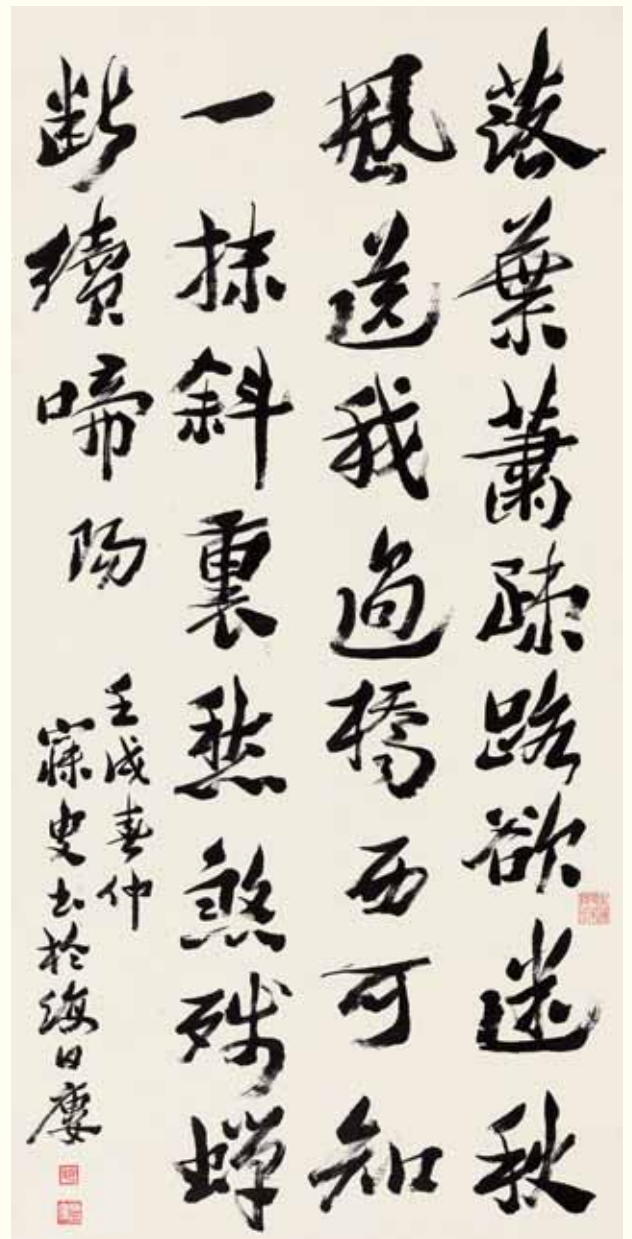 落葉蕭疎路欲迷秋
風送我過橋西可知
一抹斜裏愁煞殘蟬
斷續啼陽
壬戌春仲
寐叟書於海日廔